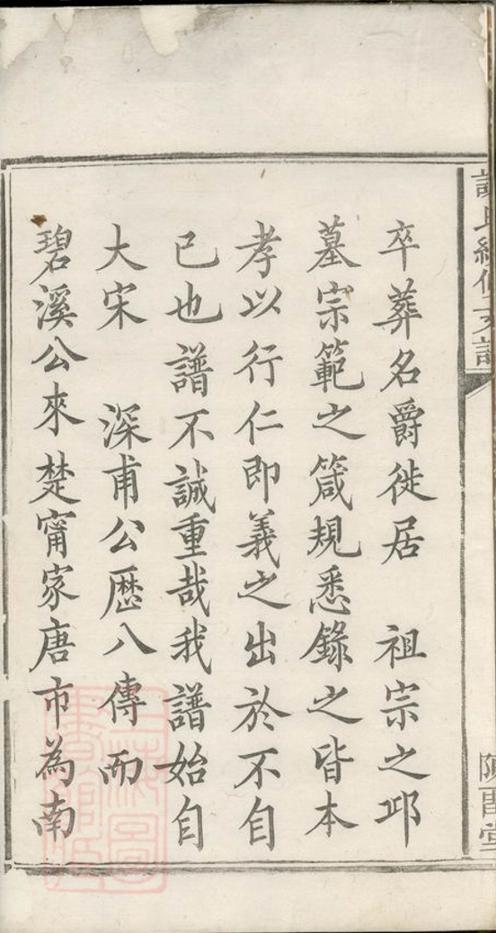 謝氏續修支譜
陳畱堂
卒葬名爵徙居　祖宗之邱
墓宗範之箴規悉錄之皆本
孝以行仁即義之出於不自
已也譜不誠重哉我譜始自
大宋　深甫公歷八傳而
碧溪公來楚甯家唐市為南